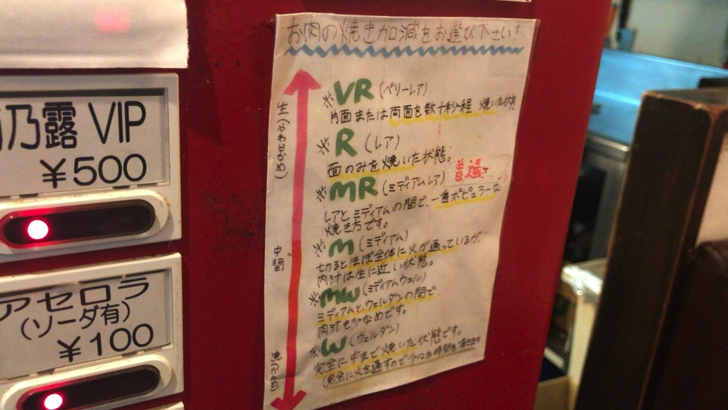 乃露 VIP
￥500
アセロラ
(ソーダ有)
￥100
お肉の焼き加減をお選び下さい!
生(やわらかめ)
中間
※VR(ベリーレア)
片面または両面を数十秒程 焼いた状態
※R(レア)
面のみを焼いた状態.
※MR(ミディアムレア) 普通
レアとミディアムの間で、一番ポピュラーな
焼き方です。
※M(ミディアム)
切るとほぼ全体に火が通っているが、
肉汁は生に近い状態。
※MW(ミディアムウェル)
ミディアムとウェルダンの間で
肉汁も少なめです。
※W(ウェルダン)
完全に中まで焼いた状態です。
(完全に火を通すので